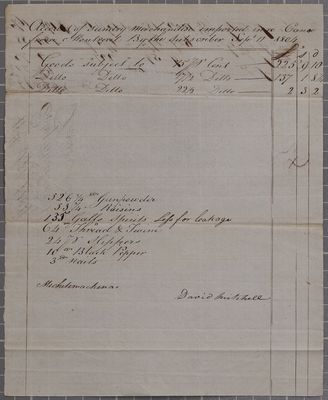 of Sundry Merchandise imported in a Canoe
from Montreal By the Subscriber Sept 11 1804
s d
Goods subject to 15 P Cent 225 9 10
Ditto Ditto 17½ Ditto 137 9 8
Ditto Ditto 22½ Ditto 2 3 2
326¼ Gunpowder
33¼ Raisins
135 Galls Spirits Less for leakage
64 Thread & Twine
24 Pr Slippers
10 Black Pepper
3 Nails
Michilimackinac
David Mitchell